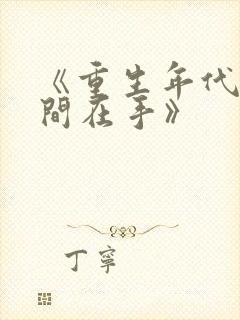 《重生年代
間在手》
丁寧